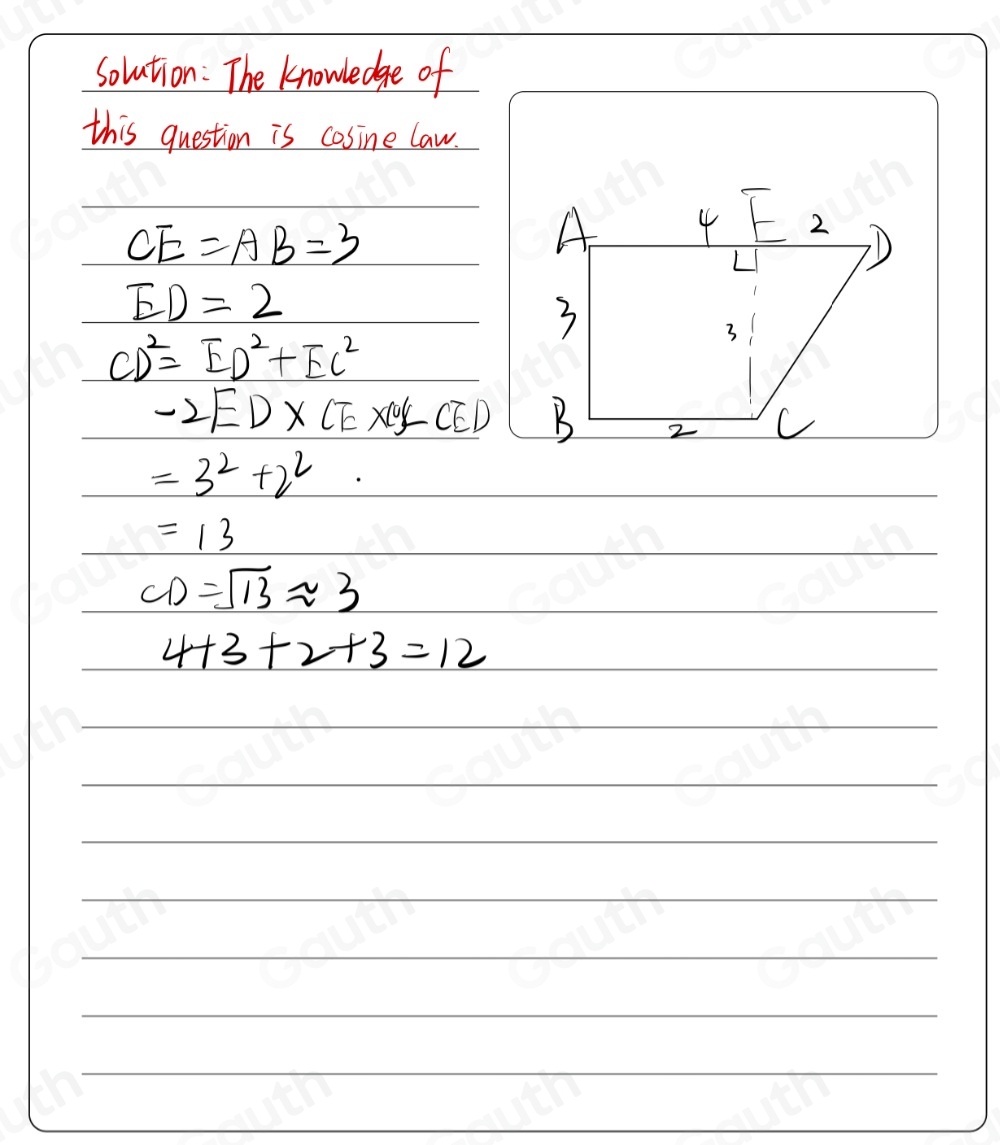 Solution: The knowledge of
this question is cosine law.
CE = AB = 3
ED = 2
CD² = ED² + EC²
-2ED × CE × cos∠CED
= 3² + 2² .
= 13
CD = √13 ≈ 3
4+3+2+3 = 12
A 4 E 2 D
3 3
B 2 C